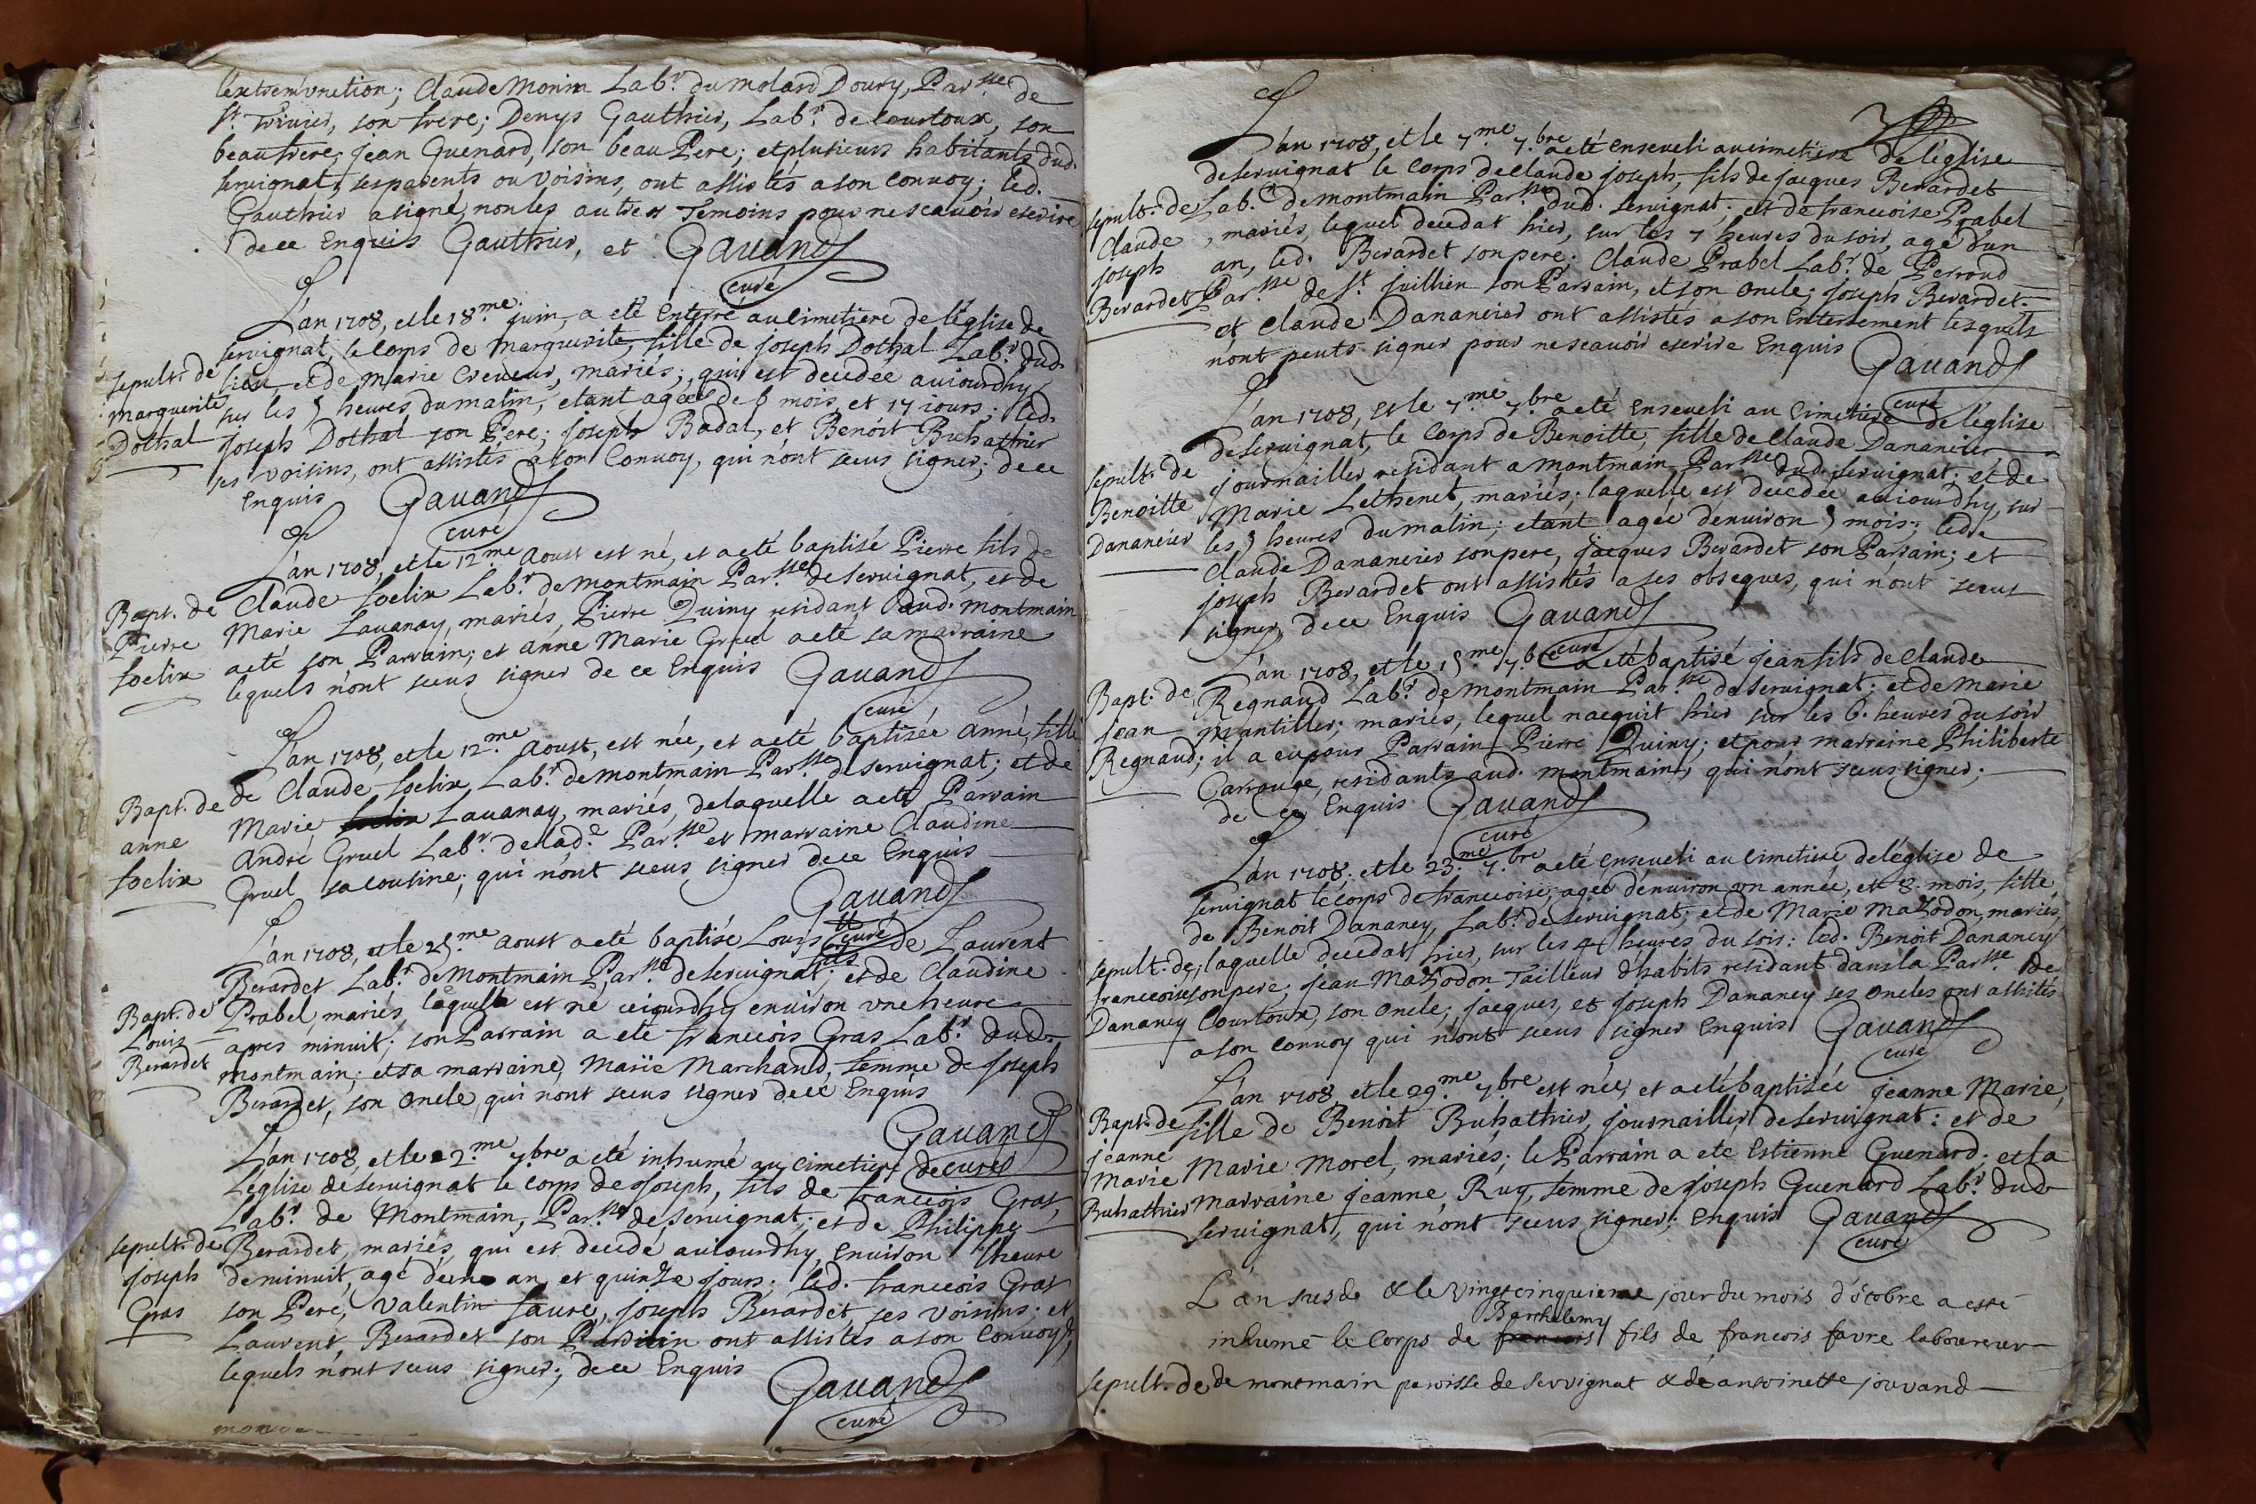 l'extremunction; Claude Monin Lab.r du molard Doury, Par.sse de
St. Trivier, son frere; Denys Gauthier, Lab.r de Courtoux, son
beaufrere; jean Guenard, son beau Pere; et plusieurs habitants dud.
servignat, ses parents ou voisins, ont assistés a son convoy; led.
Gauthier a signé, non les autres Temoins pour ne scavoir escrire
de ce Enquis Gauthier, et Gavand
curé
L'an 1708, et le 18.me juin, a eté Enterré au Cimetiere de l'église de
servignat, le Corps de marguerite, fille de joseph Dothal Lab.r dud.
sepult. de
Marguerite
Dothal
lieu et de marie Creveur, mariés; qui est decedée aujourdhy
sur les 5 heures du matin, etant agée de 6 mois, et 17 jours; led.
joseph Dothal son Pere; joseph Badal, et Benoit Buhathier
ses voisins, ont assistés a son Convoy, qui n'ont sceus signer; de ce
Enquis Gavand
curé
L'an 1708, et le 12.me Aoust est né, et a eté baptisé Pierre fils de
Bapt. de
Pierre
foelix
Claude foelix Lab.r de montmain Par.sse de servignat, et de
Marie Lavanay, mariés, Pierre Quiny residant aud. montmain
a eté son Parrain; et anne Marie Gruel a eté sa marraine
lequels n'ont sceus signer de ce Enquis Gavand
curé
L'an 1708, et le 12.me Aoust, est née, et a eté baptisée anne, fille
Bapt. de
anne
foelix
de Claude foelix Lab.r de montmain Par.sse de servignat; et de
Marie foelix Lavanay, mariés, de laquelle a eté Parrain
André Gruel Lab.r de lad.e Par.sse et marraine Claudine
Gruel sa cousine; qui n'ont sceus signer de ce Enquis
Gavand
curé
L'an 1708, et le 25.me Aoust a eté baptisé Louys fils de Laurent
Bapt. de
Louis
Berardet
Berardet Lab.r de Montmain Par.sse de servignat; et de Claudine
Prabel, mariés, lequel est né cejourdhy environ une heure
apres minuit; son Parrain a eté francois Gras Lab.r dud.
montmain; et sa marraine, Marie Marchand, femme de joseph
Berardet, son oncle qui n'ont sceus signer de ce Enquis
Gavand
curé
L'an 1708, et le 2.me 7.bre a eté inhumé au Cimetiere de
L'eglise de servignat le corps de joseph, fils de francois Gras,
sepult. de
joseph
Gras
Lab.r de Montmain, Par.sse de servignat; et de Philippe
Berardet, mariés, qui est decedé aujourdhy, environ l'heure
de minuit, agé d'un an et quinze jours: led. francois Gras
son Pere, Valentin faure, joseph Berardet, ses voisins; et
Laurent Berardet son Parrain ont assistés a son Convoy,
lequels n'ont sceus signer; de ce Enquis
Gavand
curé
L'an 1708, et le 7.me 7.bre a eté enseveli au cimetiere de l'église
de servignat le corps de Claude joseph, fils de jacques Berardet
sepult. de
Claude
joseph
Berardet
Lab.r de montmain Par.sse dud. servignat; et de francoise Prabel
, mariés, lequel decedat hier, sur les 7 heures du soir, agé d'un
an, led. Berardet son pere; Claude Prabel Lab.r de Perroud
Par.sse de St. juillien son Parrain, et son oncle; joseph Berardet
et Claude Dananeier ont assistés a son Enterrement lesquels
n'ont peuts signer pour ne scavoir escrire Enquis Gavand
curé
L'an 1708, et le 7.me 7.bre a eté enseveli au Cimetiere de l'église
de servignat, le Corps de Benoitte, fille de Claude Dananeier,
sepult. de
Benoitte
Dananeier
journaillier residant a montmain Par.sse dud. servignat; et de
Marie Lethenet, mariés; laquelle est decedée aujourdhy, sur
les 5 heures du matin; etant agée d'environ 5 mois; led.
Claude Dananeier son pere, jacques Berardet son Parrain; et
joseph Berardet ont assistés a ses obseques, qui n'ont sceus
signer, de ce Enquis Gavand
curé
L'an 1708, et le 15.me 7.bre a eté baptisé jean fils de Claude
Bapt. de
jean
Regnaud
Regnaud Lab.r de montmain Par.sse de servignat; et de Marie
Mantillet; mariés, lequel nacquit hier sur les 6. heures du soir
; il a eu pour Parrain Pierre Quiny; et pour marraine Philiberte
Carrouge, residants aud. montmain, qui n'ont sceus signer;
de Ce Enquis Gavand
curé
L'an 1708, et le 23.me 7.bre a eté enseveli au cimetiere de l'église de
servignat le corps de francoise, agée d'environ un année, et 8. mois, fille
de Benoit Dananey, Lab.r de servignat; et de Marie Mazodon, mariés,
sepult. de
francoise
Dananey
laquelle decedat hier, sur les 4 heures du soir: led. Benoit Dananey
son pere, jean Mazodon Tailleur d'habits residant dans la Par.sse de
Courtoux, son oncle; jacques, et joseph Dananey ses oncles ont assistés
a son convoy qui n'ont sceus signer Enquis Gavand
curé
L'an 1708, et le 29.me 7.bre est née, et a eté baptisée jeanne Marie,
Bapt. de
jeanne
Marie
Buhathier
fille de Benoit Buhathier, journaillier de servignat: et de
Marie Morel, mariés; le Parrain a ete Estienne Guenard; et la
marraine jeanne Ruy, femme de joseph Guenard Lab.r dud.
servignat, qui n'ont sceus signer; Enquis Gavand
curé
L'an susde & le vingtcinquieme jour du mois d'octobre a esté
inhumé le Corps de francois Barthelemy fils de francois favre laboureur
sepult. de
de montmain paroisse de servignat & de antoinette jouvand